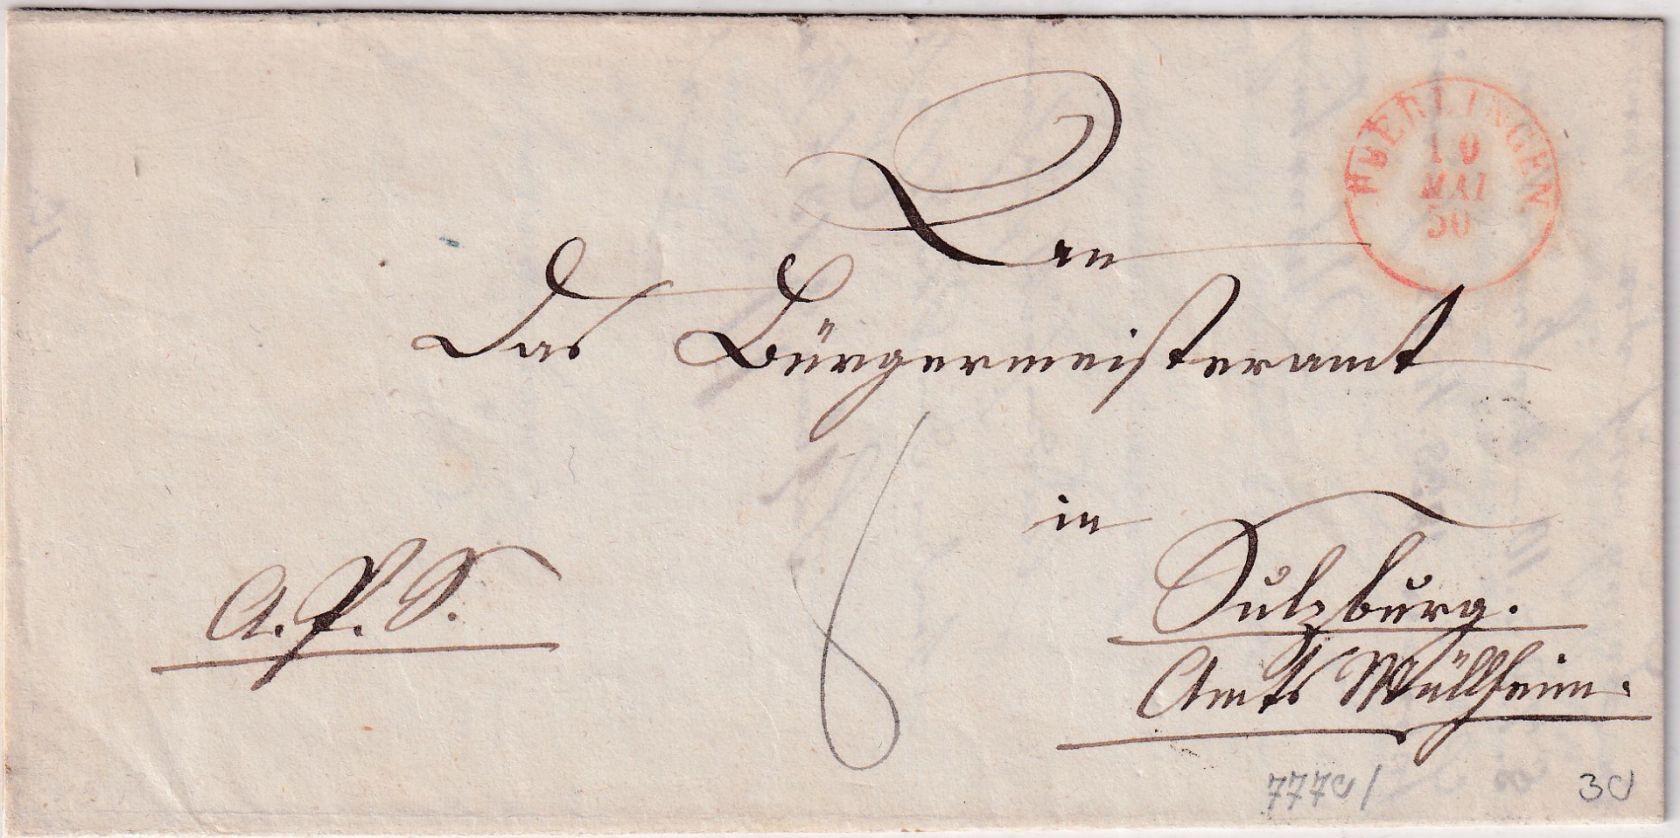 UEBERLINGEN
10
MAI
50
An
Das Bürgermeisteramt
in
Sulzburg.
A. P. S.
Amts Müllheim.
6
30